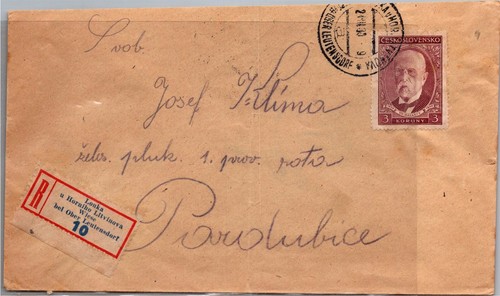 Svob.
Josef Klíma
želez. pluk. 1. prov. rota
Pardubice
ČESKOSLOVENSKO
3 KORONY 3
OBER LEUTENSDORF
R
Louka
u Horního Litvínova
Wiese
bei Ober Leutensdorf
10